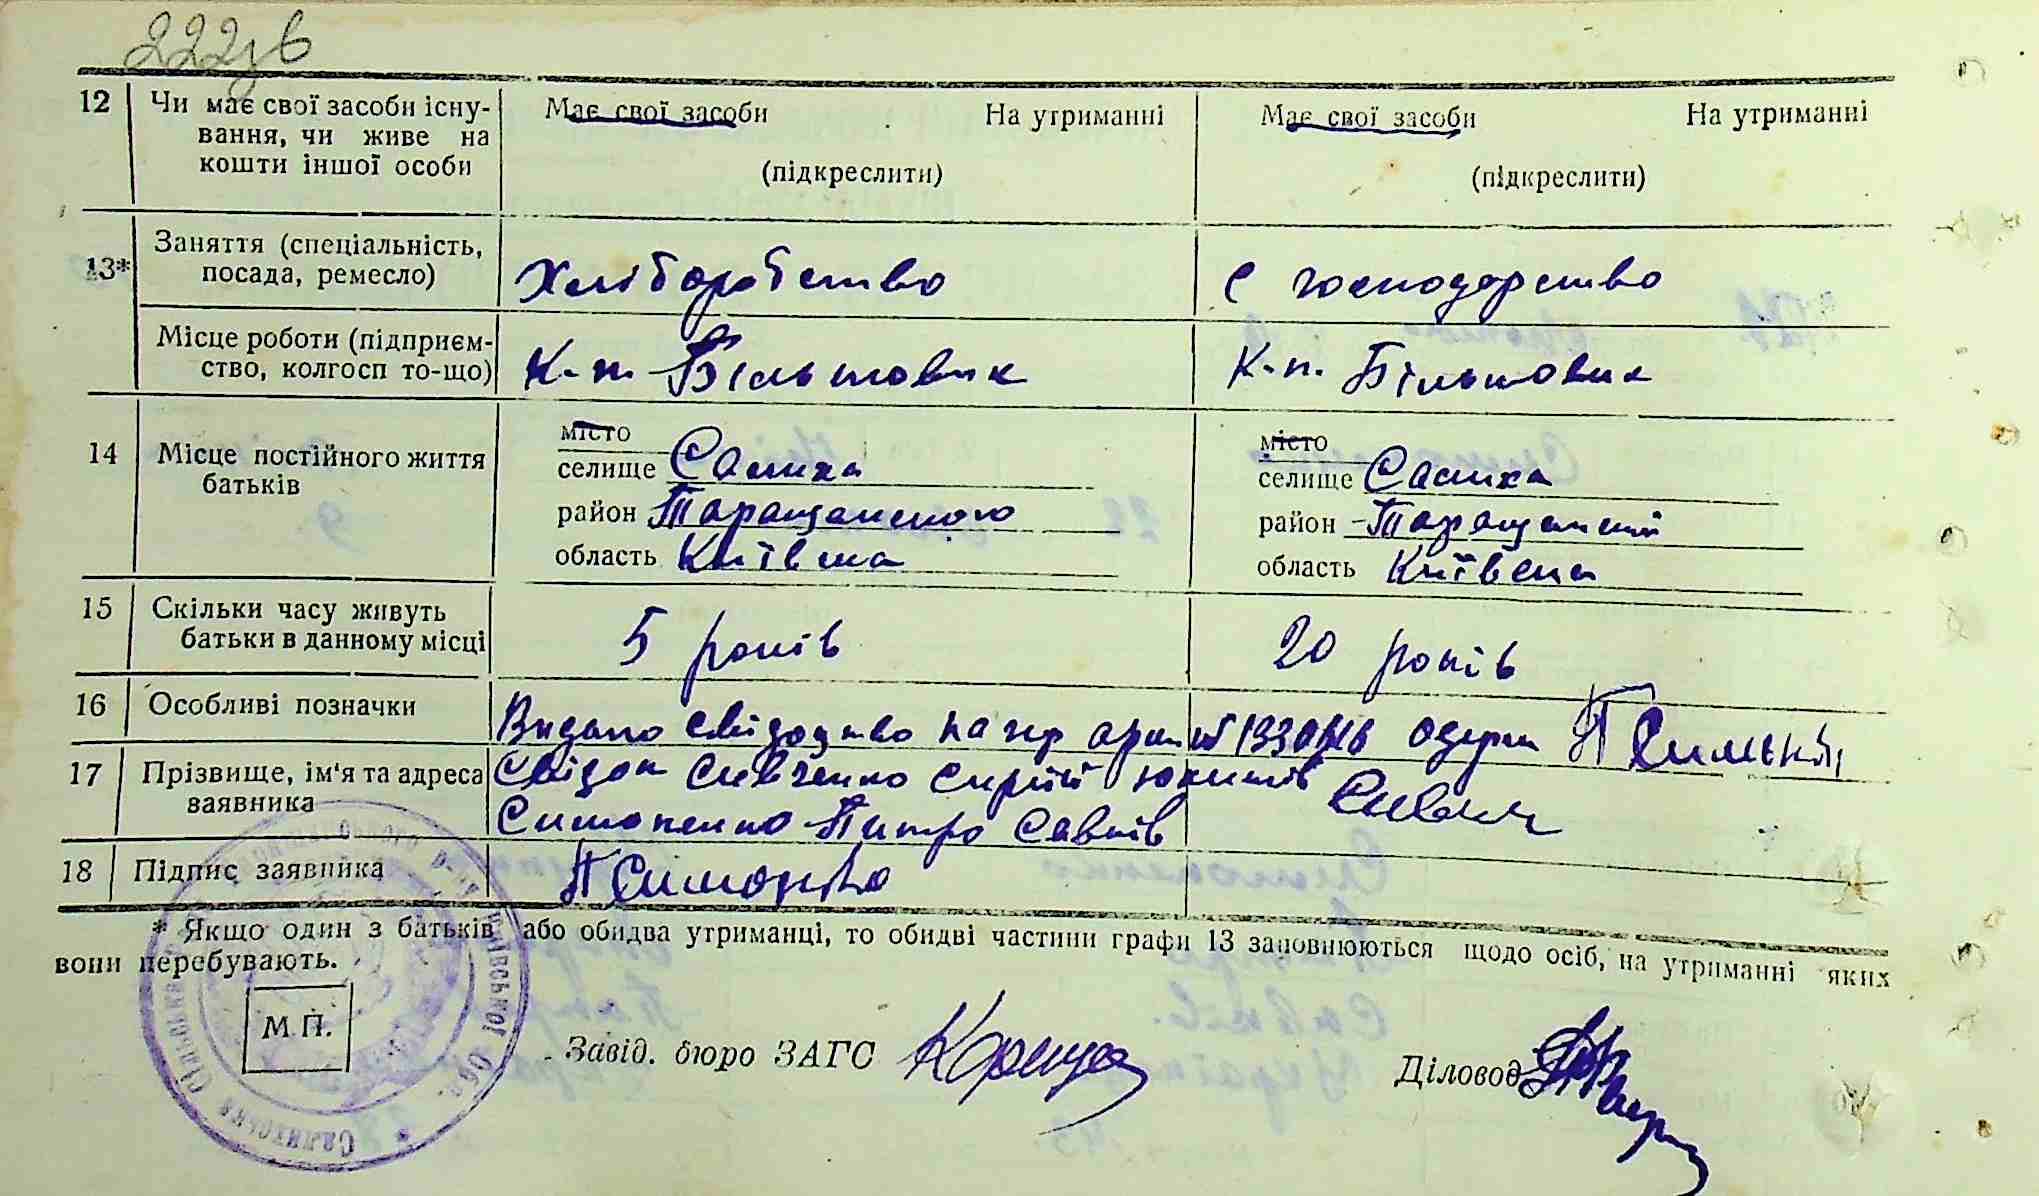 222зв
12 Чи має свої засоби існу- Має свої засоби На утриманні Має свої засоби На утриманні
вання, чи живе на
кошти іншої особи (підкреслити) (підкреслити)
13* Заняття (спеціальність,
посада, ремесло) Хліборобство С господарство
Місце роботи (підприєм-
ство, колгосп то-що) К-п. Більшовик К-п. Більшовик
14 Місце постійного життя
батьків
місто місто
селище Салиха селище Салиха
район Таращанського район Таращанський
область Київська область Київська
15 Скільки часу живуть
батьки в данному місці 5 років 20 років
16 Особливі позначки Видано свідоцтво на
17 Прізвище, ім'я та адреса Свідок Сивченко
заявника Симоненко Питро Савків
18 Підпис заявника П Симоненко
* Якщо один з батьків або обидва утриманці, то обидві частини графи 13 заповнюються щодо осіб, на утриманні яких
вони перебувають.
М. П.
Завід. бюро ЗАГС
Діловод